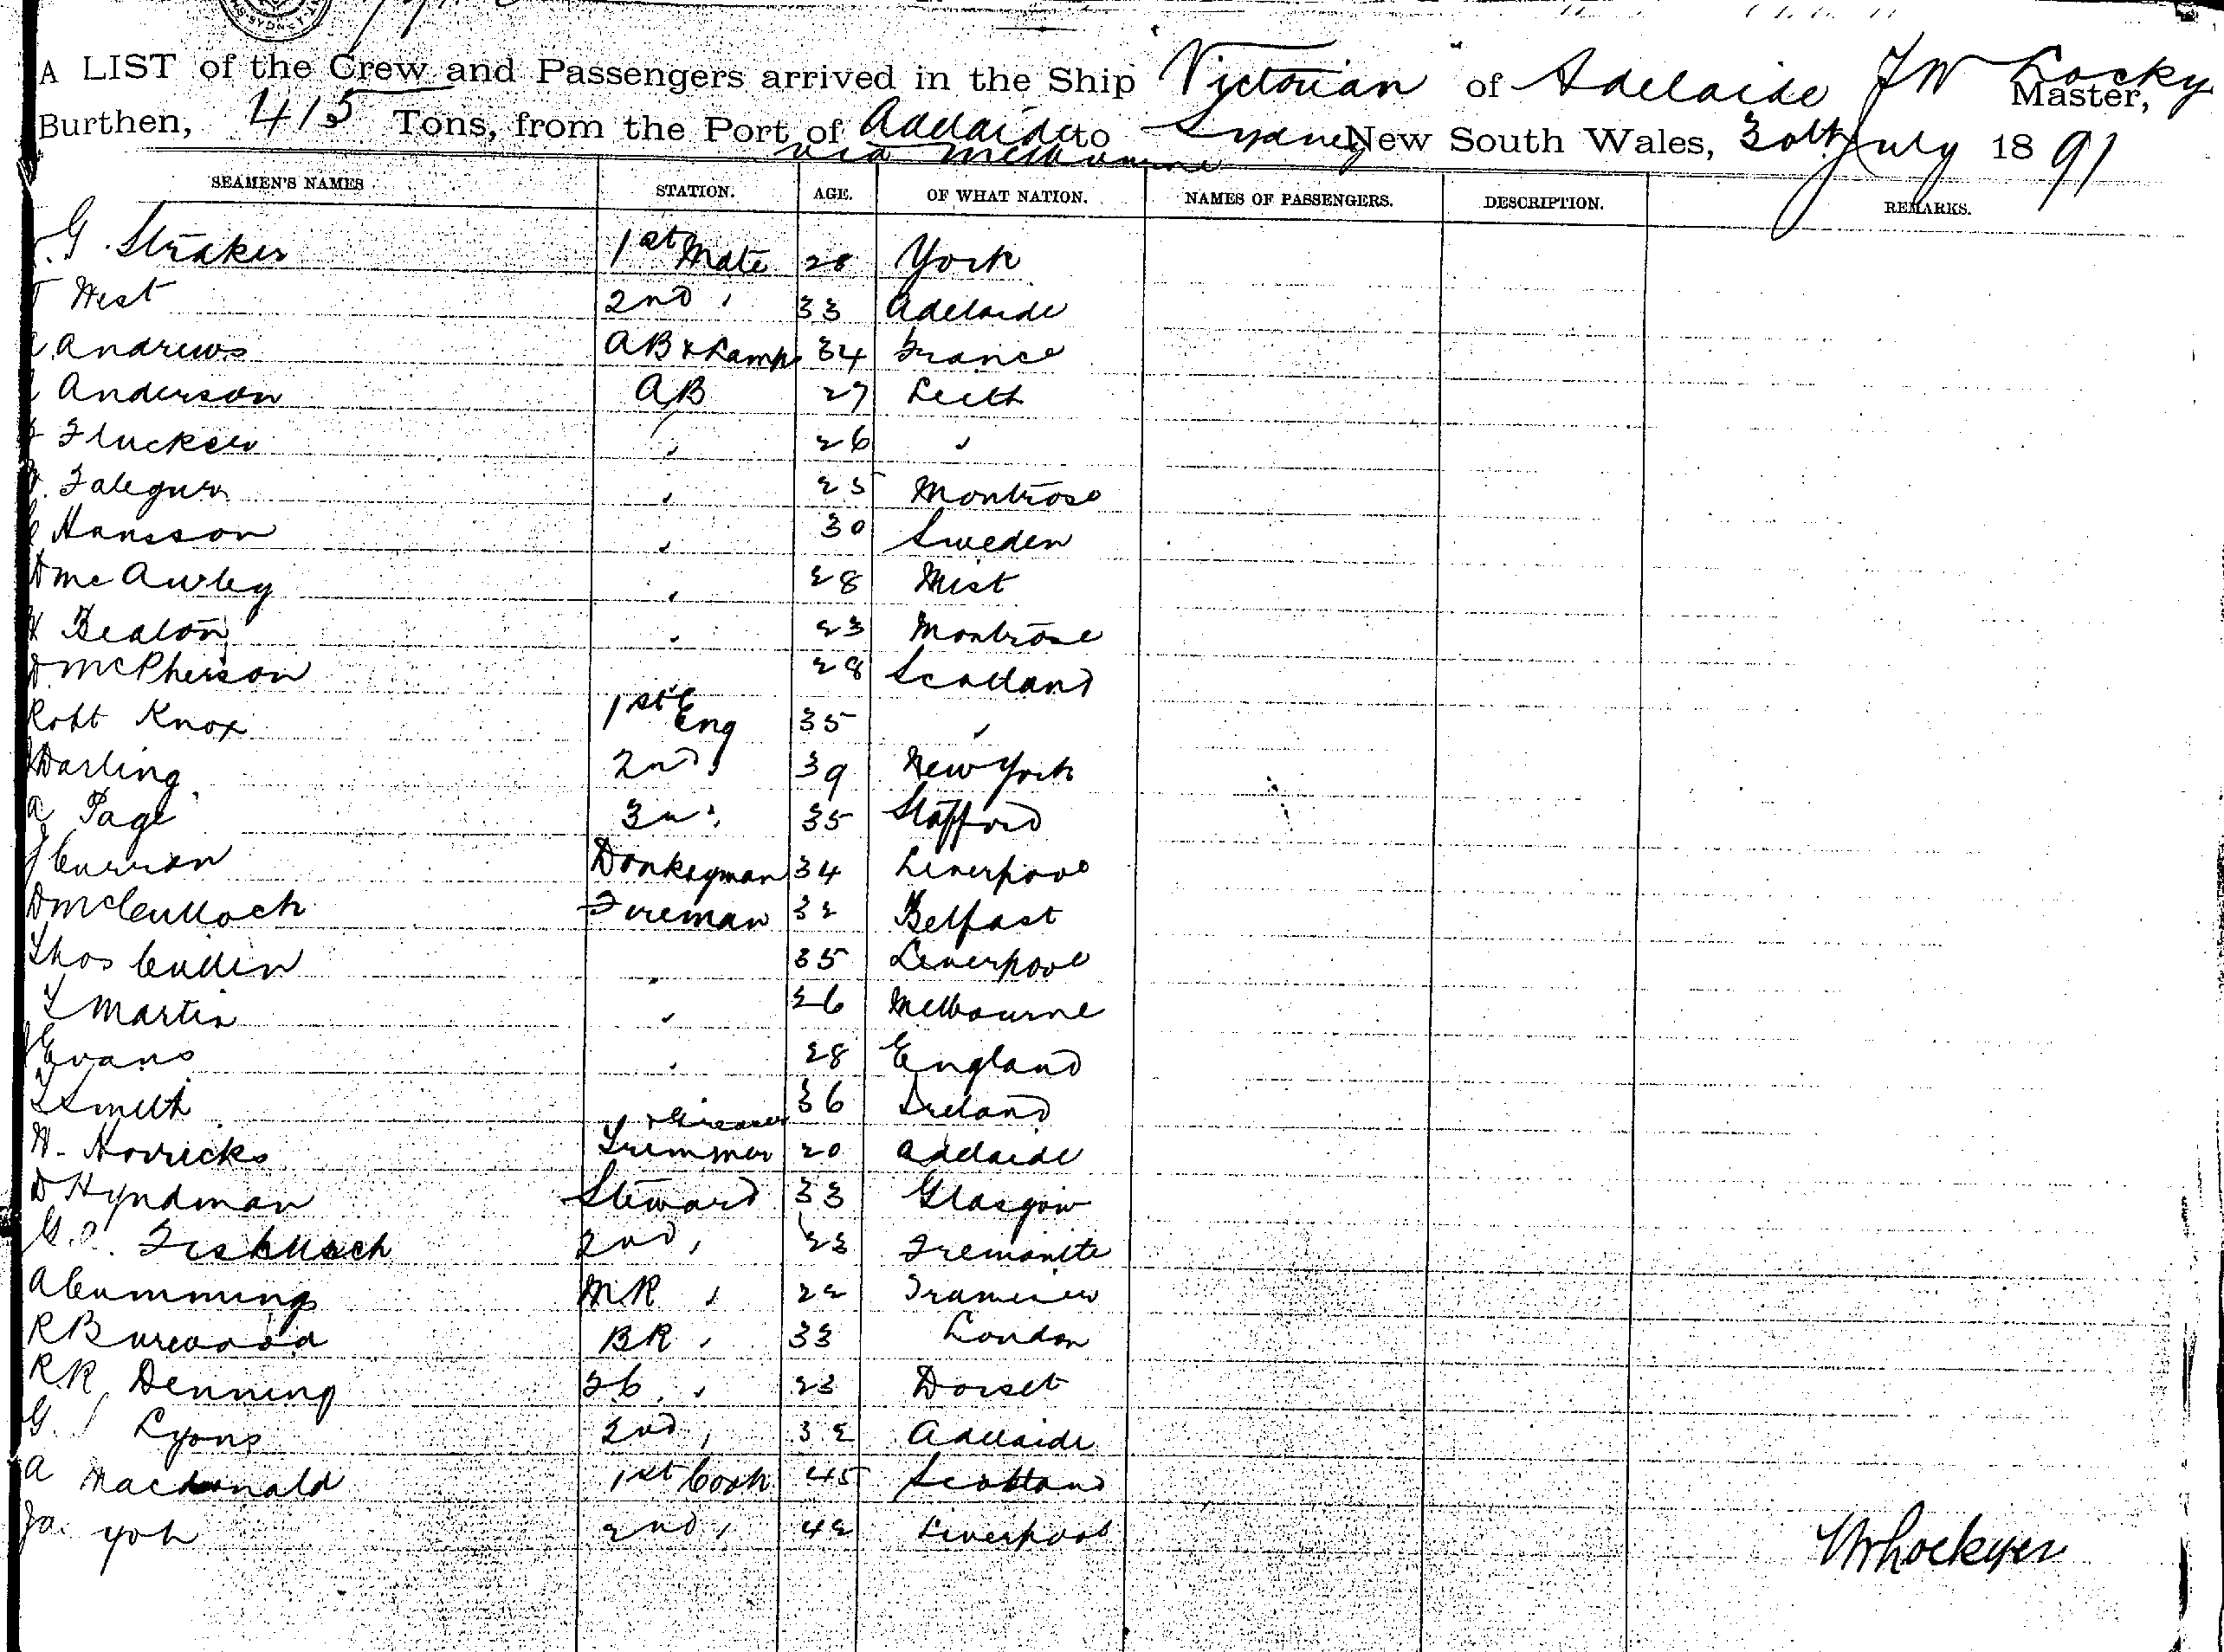 A LIST of the Crew and Passengers arrived in the Ship Victorian of Adelaide J W Master,
Burthen, 415 Tons, from the Port of Adelaide to Sydney New South Wales, 30th July 1891
via Melbourne
SEAMEN'S NAMES STATION. AGE. OF WHAT NATION. NAMES OF PASSENGERS. DESCRIPTION. REMARKS.
G Straker 1st Mate 28 York
T West 2nd " 33 Adelaide
Andrews AB & Lamps 34 France
Anderson AB 27 Leith
Flucker " 26 "
" 25 Montrose
Hansson " 30 Sweden
D McAuley " 28
Beaton " 23 Montrose
D McPherson 28 Scotland
Robt Knox 1st Eng 35 "
Darling 2nd " 39 New York
A Page 3rd " 35 Stafford
J Curran Donkeyman 34 Liverpool
D McCulloch Fireman 32 Belfast
Thos Cullen " 35 Liverpool
T Martin " 26 Melbourne
J Evans " 28 England
T Smith 36 Ireland
W. Horricks Trimmer & Greaser 20 Adelaide
D Hyndman Steward 33 Glasgow
G. 2nd " 23 Fremantle
A Cummings MR " 22
R Burwood BR " 33 London
R.R Denning " 23 Dorset
G. Lyons 2nd " 32 Adelaide
A Macdonald 1st Cook 45 Scotland
Ja. Yoh 2nd " 42 Liverpool
Lockyer